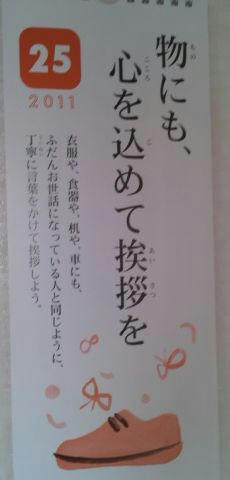 25
2011
物にも、
心を込めて挨拶を
衣服や、食器や、机や、車にも、
ふだんお世話になっている人と同じように、
丁寧に言葉をかけて挨拶しよう。